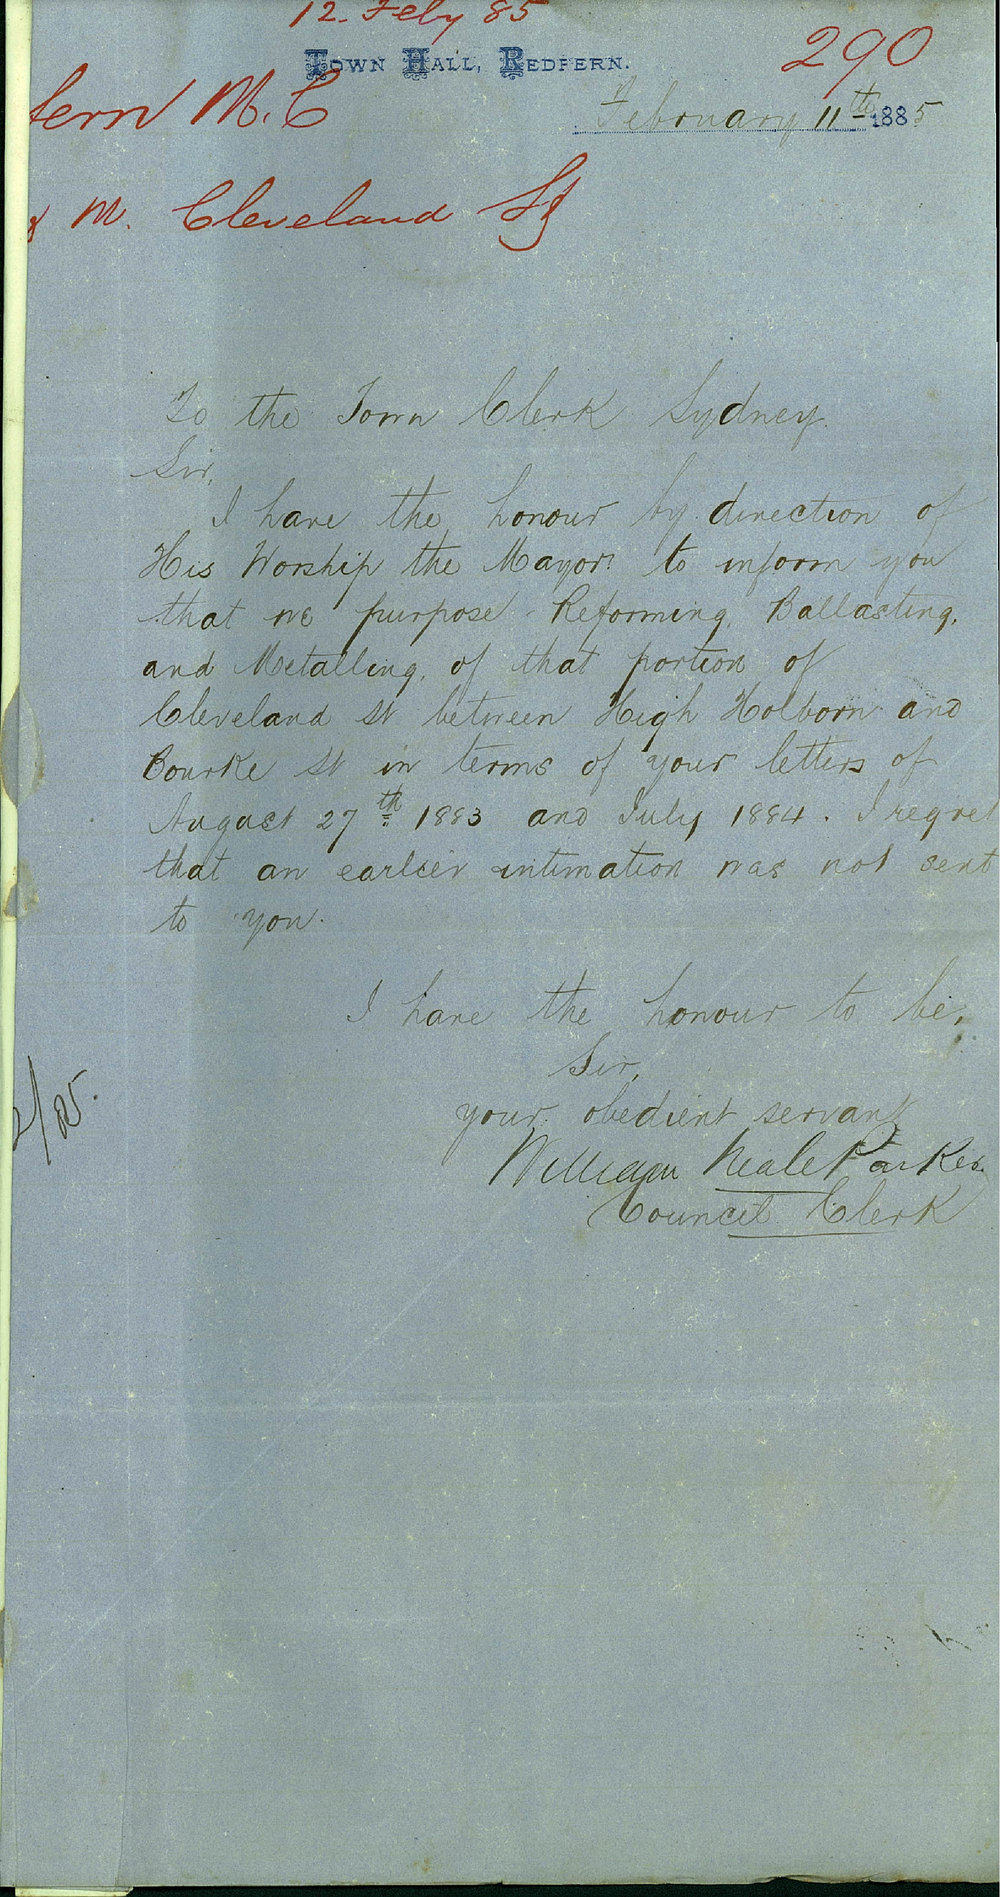 12. Feby 85
290
TOWN HALL, REDFERN.
fern M. C
February 11th 1885
M. Cleveland St
To the Town Clerk Sydney.
Sir,
I have the honour by direction of
His Worship the Mayor to inform you
that we purpose Reforming, Ballasting,
and Metalling, of that portion of
Cleveland St between High Holborn and
Bourke St in terms of your letters of
August 27th 1883 and July 1884. I regret
that an earlier intimation was not sent
to you.
I have the honour to be,
Sir,
your obedient servant
William Neale Parkes
Council Clerk